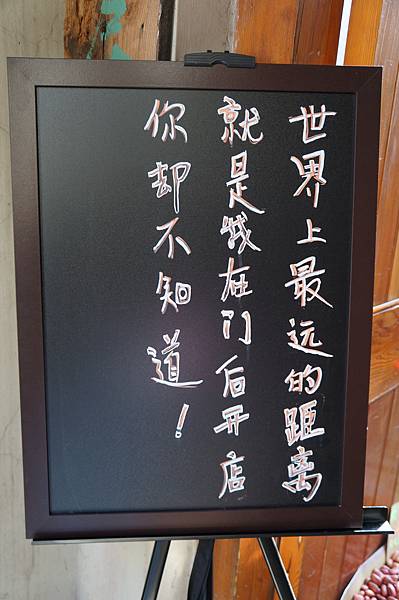 世界上最远的距离
就是我在门后开店
你却不知道！